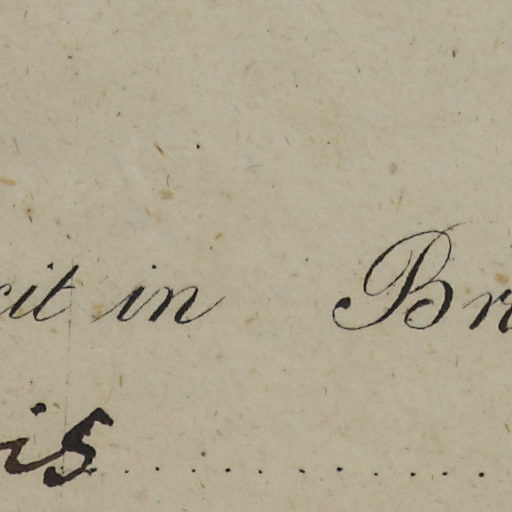 cit in Br
is..........